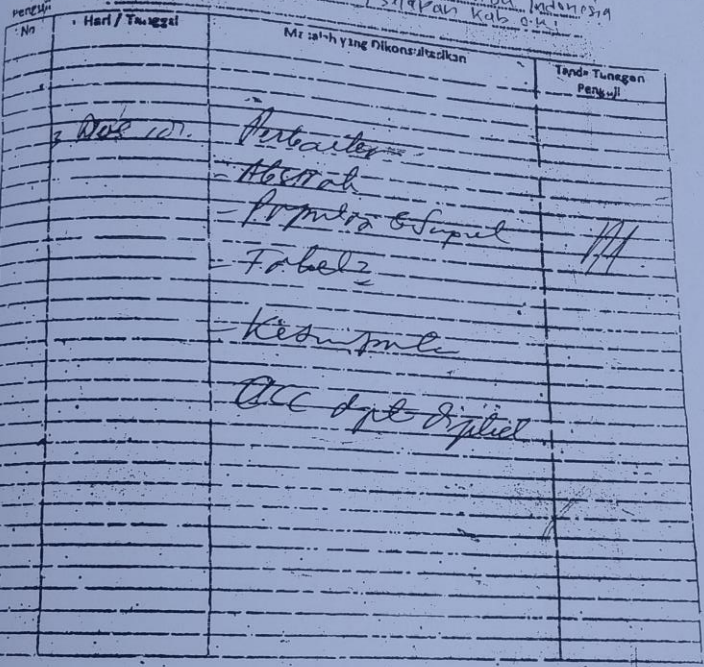 Indonesia
Kab OKI
Penguji
No
Hari / Tanggal
Masalah yang Dikonsultasikan
Tanda Tangan
Penguji
Perbaiken
- Abstrak
- Populasi & Sampel
- Tabel2
- Kesimpula
ACC dpt dijilid